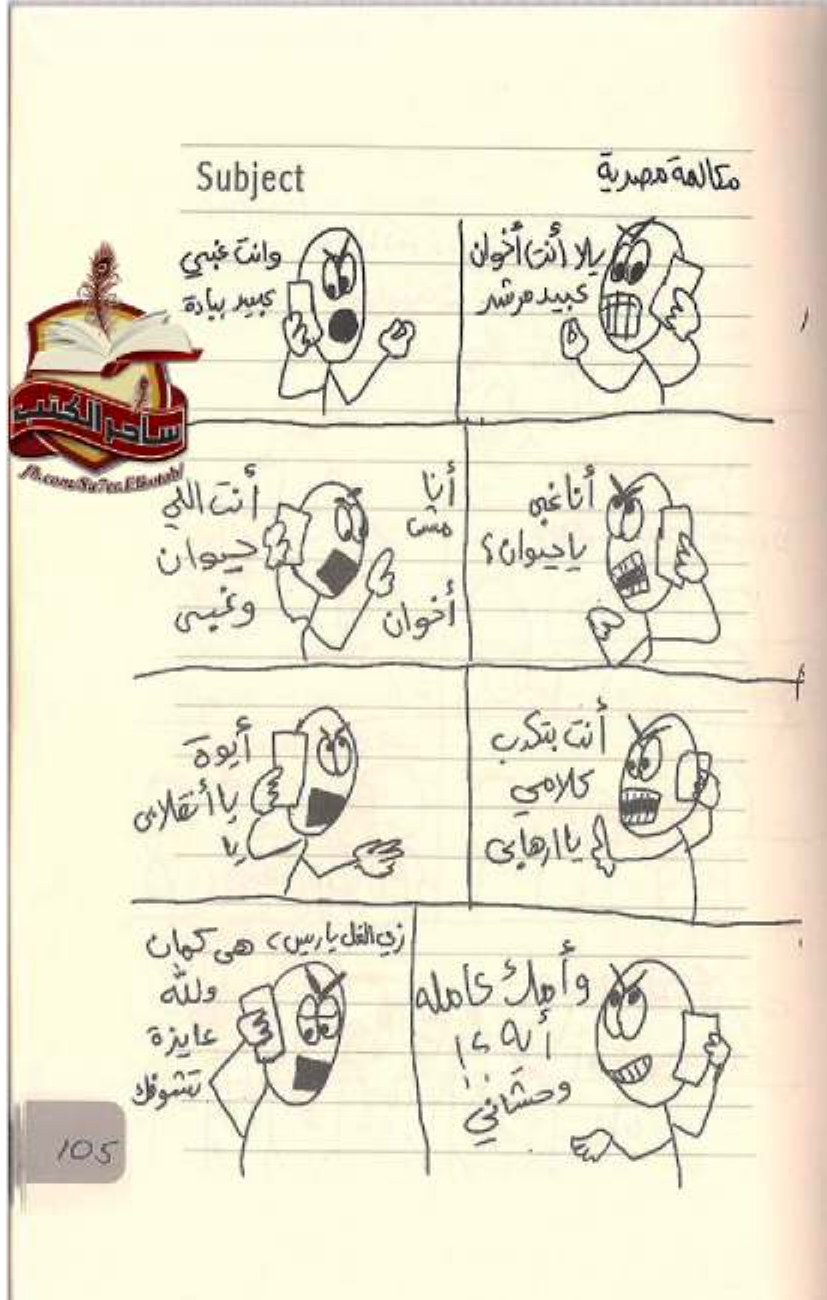 Subject
مكالمة مصرية
يلا أنت أخوان
عبيد مرشد
وانت غبي
عبيد بيادة
أنا غبي
يا حيوان؟
أنا
مش
أخوان
أنت اللي
حيوان
وغبي
أنت بتكدب
كلامي
يا ارهابي
أيوة
يا أنقلابي
يا
وأمك عامله
أيه؟!
وحشاني
زي الفل ياريس، هي كمان
ولله
عايزة
تشوفك
ساحر الكتب
105